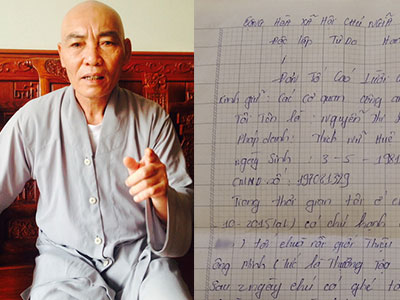 CỘNG HOÀ XÃ HỘI CHỦ NGHĨA
Độc lập Tự Do Hạn
Đơn Tố Cáo
Kính gửi: Các cơ quan công an
Tôi Tên là: Nguyễn Thị
Pháp danh: Thích nữ Huệ
ngày Sinh: 3-5-1981
CMND số:
Trong thời gian tôi ở
10-2015(al) có chú hạnh
) tới chùa rồi giới Thiệu
ông minh (tức là Thượng Tọa
Sau 2 ngày chú có ghé